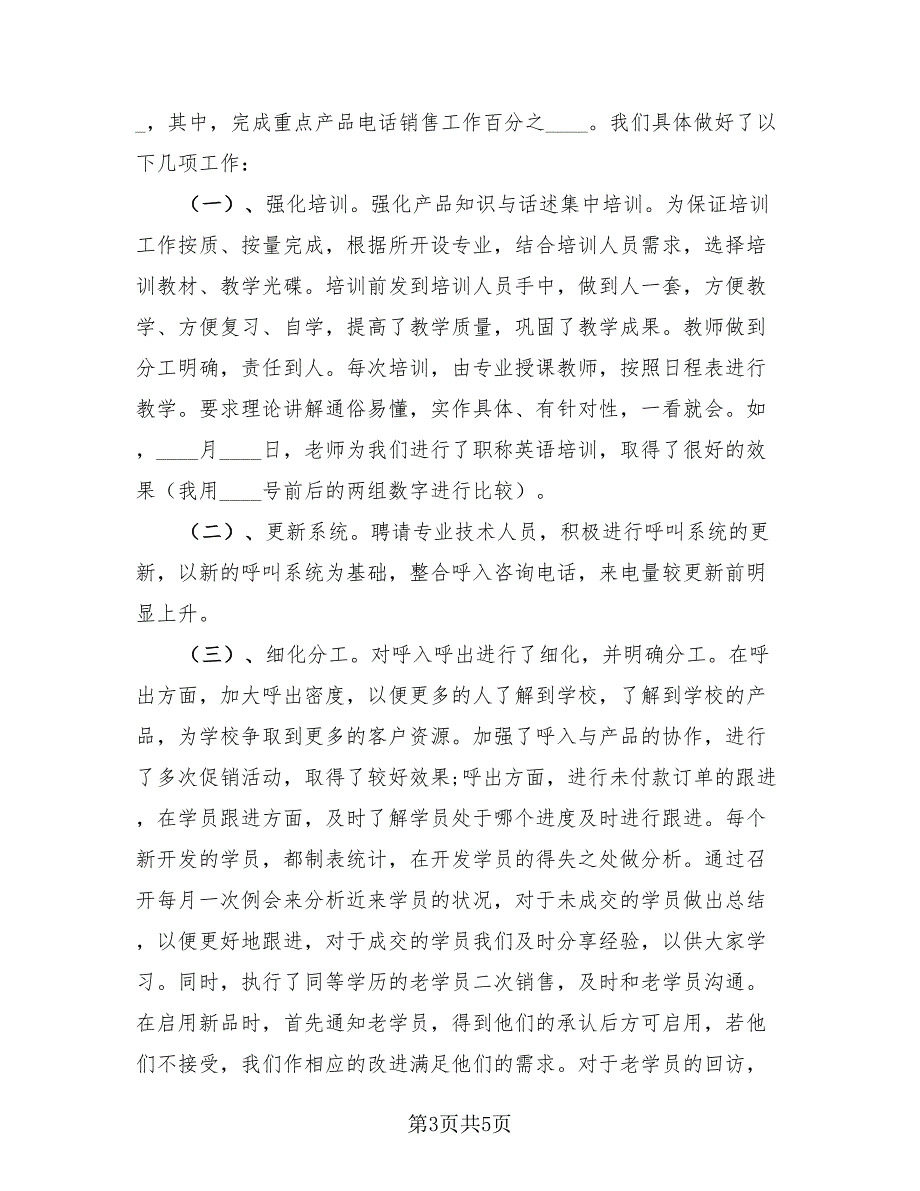 _，其中，完成重点产品电话销售工作百分之____。我们具体做好了以
下几项工作：
（一）、强化培训。强化产品知识与话述集中培训。为保证培训
工作按质、按量完成，根据所开设专业，结合培训人员需求，选择培
训教材、教学光碟。培训前发到培训人员手中，做到人一套，方便教
学、方便复习、自学，提高了教学质量，巩固了教学成果。教师做到
分工明确，责任到人。每次培训，由专业授课教师，按照日程表进行
教学。要求理论讲解通俗易懂，实作具体、有针对性，一看就会。如
，____月____日，老师为我们进行了职称英语培训，取得了很好的效
果（我用____号前后的两组数字进行比较）。
（二）、更新系统。聘请专业技术人员，积极进行呼叫系统的更
新，以新的呼叫系统为基础，整合呼入咨询电话，来电量较更新前明
显上升。
（三）、细化分工。对呼入呼出进行了细化，并明确分工。在呼
出方面，加大呼出密度，以便更多的人了解到学校，了解到学校的产
品，为学校争取到更多的客户资源。加强了呼入与产品的协作，进行
了多次促销活动，取得了较好效果;呼出方面，进行未付款订单的跟进
，在学员跟进方面，及时了解学员处于哪个进度及时进行跟进。每个
新开发的学员，都制表统计，在开发学员的得失之处做分析。通过召
开每月一次例会来分析近来学员的状况，对于未成交的学员做出总结
，以便更好地跟进，对于成交的学员我们及时分享经验，以供大家学
习。同时，执行了同等学历的老学员二次销售，及时和老学员沟通。
在启用新品时，首先通知老学员，得到他们的承认后方可启用，若他
们不接受，我们作相应的改进满足他们的需求。对于老学员的回访，
第3页共5页